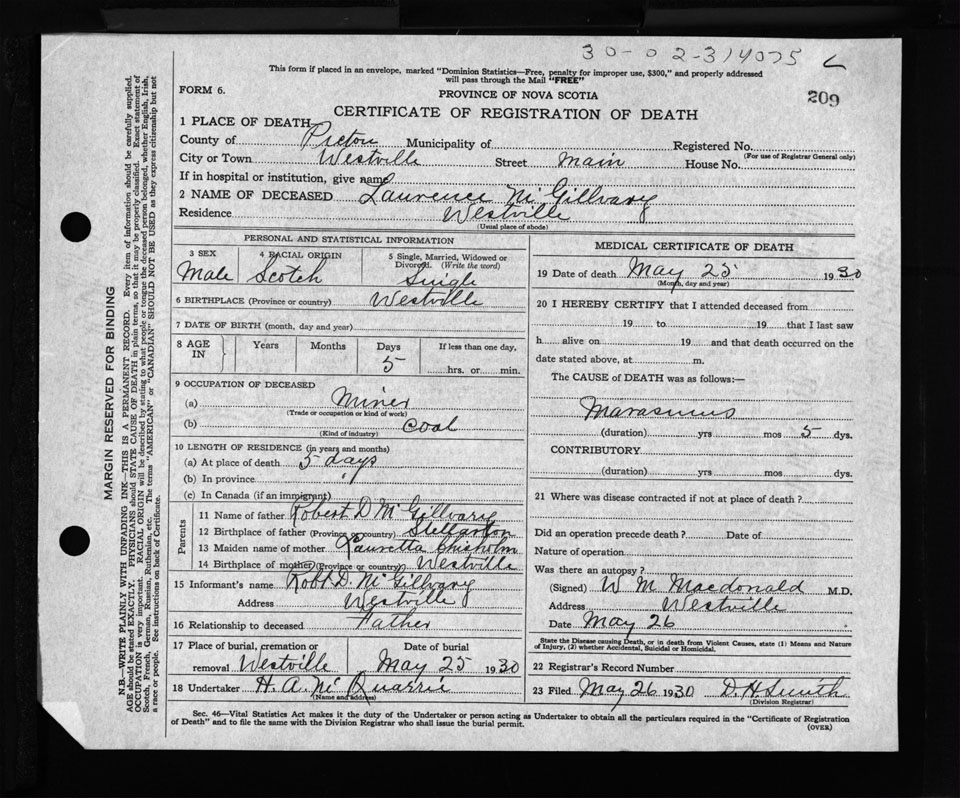 30-02-314075
This form if placed in an envelope, marked "Dominion Statistics—Free, penalty for improper use, $300," and properly addressed
will pass through the Mail "FREE"
FORM 6.
PROVINCE OF NOVA SCOTIA
209
CERTIFICATE OF REGISTRATION OF DEATH
1 PLACE OF DEATH
County of Pictou Municipality of Registered No.
(For use of Registrar General only)
City or Town Westville Street Main House No.
If in hospital or institution, give name
2 NAME OF DECEASED Laurence McGillvary
Residence Westville
(Usual place of abode)
PERSONAL AND STATISTICAL INFORMATION
3 SEX 4 RACIAL ORIGIN 5 Single, Married, Widowed or
Divorced. (Write the word)
Male Scotch Single
6 BIRTHPLACE (Province or country) Westville
7 DATE OF BIRTH (month, day and year)
8 AGE IN Years Months Days If less than one day,
5 hrs. or min.
9 OCCUPATION OF DECEASED
(a) Miner
(Trade or occupation or kind of work)
(b) Coal
(Kind of industry)
10 LENGTH OF RESIDENCE (in years and months)
(a) At place of death 5 days
(b) In province "
(c) In Canada (if an immigrant)
Parents
11 Name of father Robert D McGillvary
12 Birthplace of father (Province or country) Stellarton
13 Maiden name of mother Lauretta Chisholm
14 Birthplace of mother (Province or country) Westville
15 Informant's name Robt D. McGillvary
Address Westville
16 Relationship to deceased Father
17 Place of burial, cremation or Date of burial
removal Westville May 25 1930
18 Undertaker H. A. McQuarrie
(Name and address)
MEDICAL CERTIFICATE OF DEATH
19 Date of death May 25 1930
(Month, day and year)
20 I HEREBY CERTIFY that I attended deceased from
19 to 19 that I last saw
h alive on 19 and that death occurred on the
date stated above, at m.
The CAUSE of DEATH was as follows:—
Marasmus
(duration) yrs mos 5 dys.
CONTRIBUTORY
(duration) yrs mos dys.
21 Where was disease contracted if not at place of death?
Did an operation precede death? Date of
Nature of operation
Was there an autopsy?
(Signed) W M Macdonald M.D.
Address Westville
Date May 26
State the Disease causing Death, or in death from Violent Causes, state (1) Means and Nature
of Injury, (2) whether Accidental, Suicidal or Homicidal.
22 Registrar's Record Number
23 Filed May 26 1930 D. H Smith
(Division Registrar)
Sec. 46—Vital Statistics Act makes it the duty of the Undertaker or person acting as Undertaker to obtain all the particulars required in the "Certificate of Registration
of Death" and to file the same with the Division Registrar who shall issue the burial permit.
(OVER)
MARGIN RESERVED FOR BINDING
N.B.—WRITE PLAINLY WITH UNFADING INK—THIS IS A PERMANENT RECORD. Every item of information should be carefully supplied.
AGE should be stated EXACTLY. PHYSICIANS should STATE CAUSE OF DEATH in plain terms, so that it may be properly classified. Exact statement of
OCCUPATION is very important. RACIAL ORIGIN will be described by stating to what people or tongue the deceased person belonged, whether English, Irish,
Scotch, French, German, Russian, Ruthenian, etc. The terms "AMERICAN" or "CANADIAN" SHOULD NOT BE USED as they express citizenship but not
a race or people. See instructions on back of Certificate.